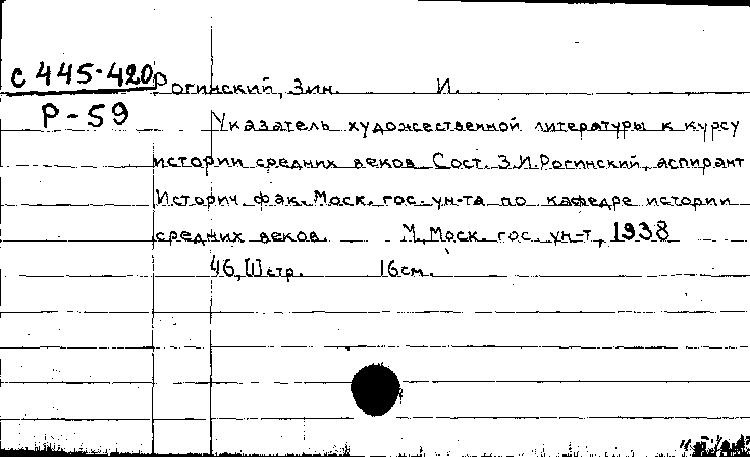 С 445-420 Рогинский, Зин. И.
Р-59
Указатель художественной литературы к курсу
истории средних веков. Сост. З.И.Рогинский, аспирант
Историч. фак. Моск. гос. ун-та по кафедре истории
средних веков. М., Моск. гос. ун-т, 1938
46, [1] стр. 16 см.